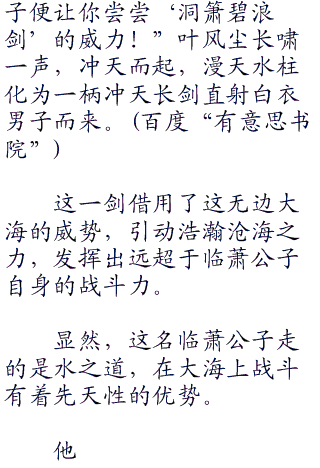 子便让你尝尝‘洞箫碧浪
剑’的威力！”叶风尘长啸
一声，冲天而起，漫天水柱
化为一柄冲天长剑直射白衣
男子而来。(百度“有意思书
院”)
这一剑借用了这无边大
海的威势，引动浩瀚沧海之
力，发挥出远超于临萧公子
自身的战斗力。
显然，这名临萧公子走
的是水之道，在大海上战斗
有着先天性的优势。
他